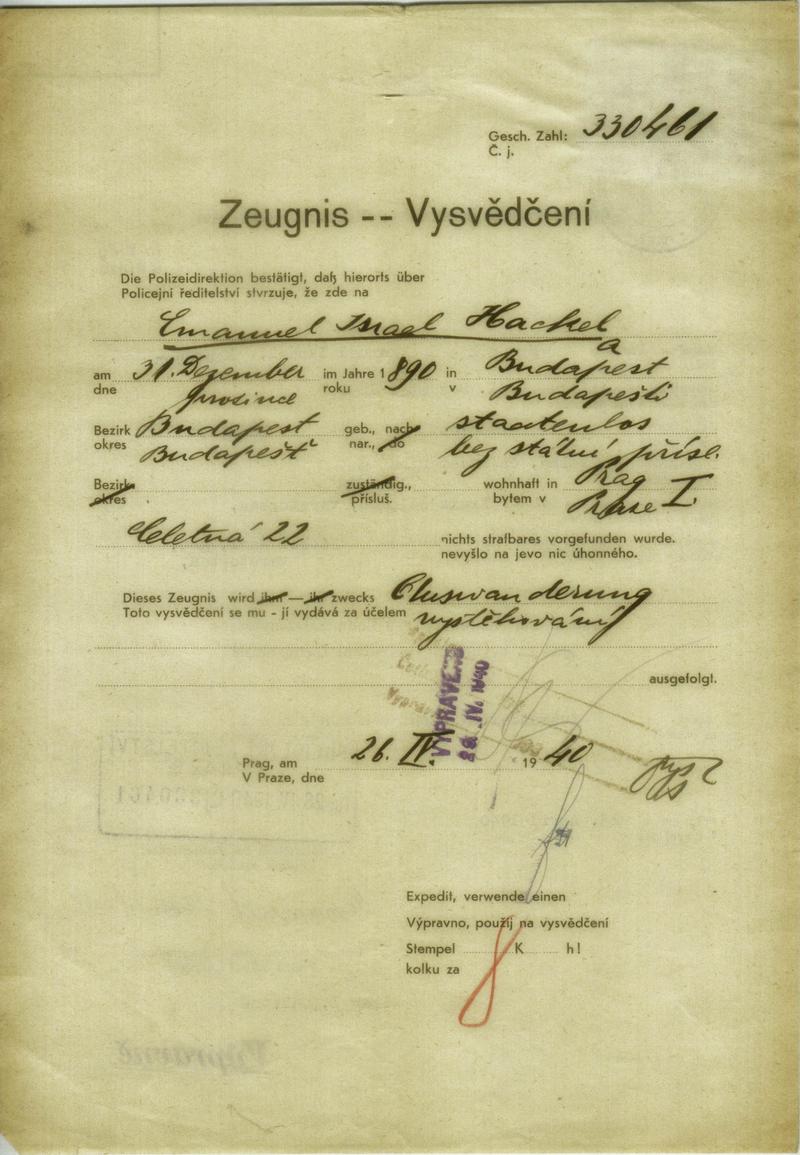 Gesch. Zahl: 330461
Č. j.
Zeugnis -- Vysvědčení
Die Polizeidirektion bestätigt, daß hierorts über
Policejní ředitelství stvrzuje, že zde na
Emanuel Israel Hackel
a
am 31. Dezember im Jahre 1890 in Budapest
dne prosince roku v Budapešti
Bezirk Budapest geb., nach staatenlos
okres Budapešť nar., do bez státní přísl.
Bezirk zuständig., wohnhaft in Prag I.
okres přísluš. bytem v Praze
Celetná 22 nichts strafbares vorgefunden wurde.
nevyšlo na jevo nic úhonného.
Dieses Zeugnis wird ihm — ihr zwecks Auswanderung
Toto vysvědčení se mu - jí vydává za účelem vystěhování
ausgefolgt.
VYPRAVENO
26. IV. 1940
Prag, am 26. IV. 1940
V Praze, dne
Expedit, verwende einen
Výpravno, použij na vysvědčení
Stempel K h!
kolku za